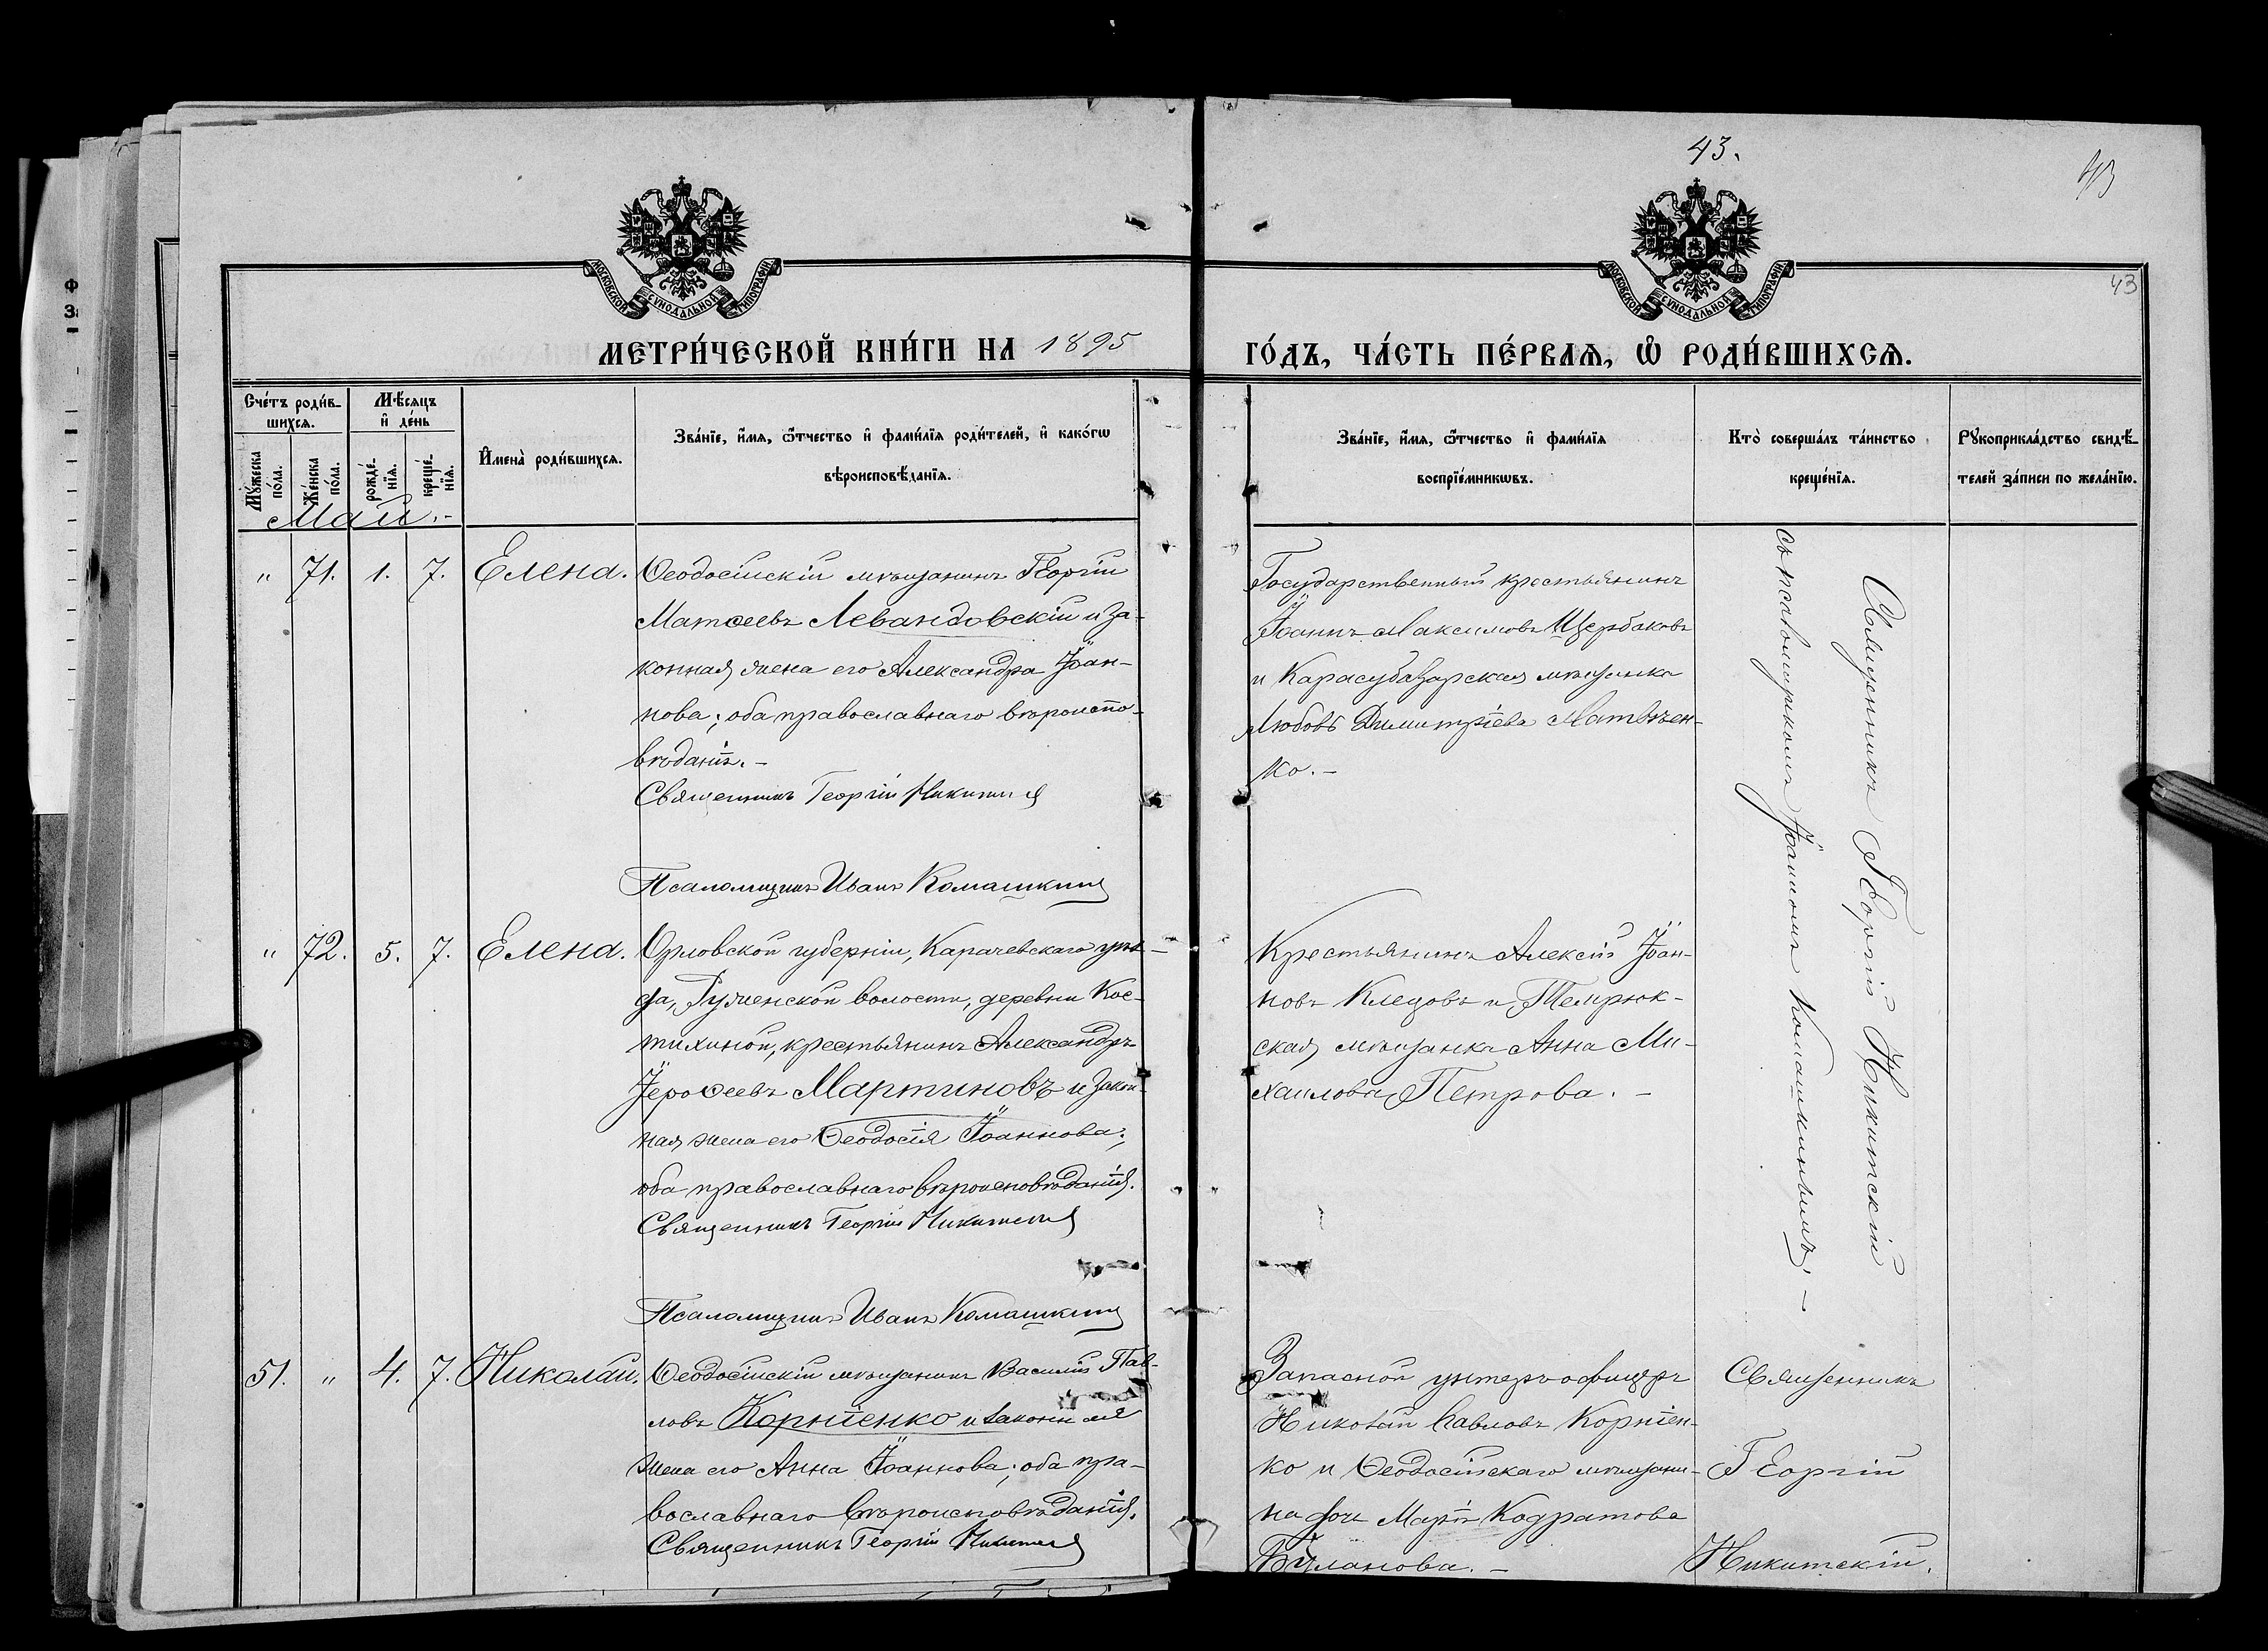 43.
43
43
МОСКОВСКОЙ СѴНОДАЛЬНОЙ ТИПОГРАФІИ
МОСКОВСКОЙ СѴНОДАЛЬНОЙ ТИПОГРАФІИ
МЕТРИ́ЧЕСКОЙ КНИ́ГИ НА 1895
ГО́ДЪ, ЧА́СТЬ ПЕ́РВАѦ, Ѡ РОДИ́ВШИХСѦ.
Сче́тъ роди́в-
шихсѧ.
Мѣ́сѧцъ
и҆ де́нь
Мꙋ́жеска
по́ла.
Же́нска
по́ла.
рожде́-
нїѧ.
креще́-
нїѧ.
И҆мена̀ роди́вшихсѧ.
Зва́нїе, и҆́мѧ, ѻ҆́тчество и҆ фами́лїѧ роди́телей, и҆ како́гѡ
вѣроисповѣ́данїѧ.
Зва́нїе, и҆́мѧ, ѻ҆́тчество и҆ фами́лїѧ
воспрїе́мникѡвъ.
Кто̀ соверша́лъ та́инство
креще́нїѧ.
Рꙋкоприкла́дство свидѣ́-
телей за́писи по жела́нїю.
Май.-
" 71. 1. 7. Елена.
Ѳеодосійскій мѣщанинъ Георгій
Матѳеевъ Левандовскій и за-
конная жена его Александра Іоан-
нова; оба православнаго вѣроиспо-
вѣданія.-
Священникъ Георгій Никитскій
Псаломщикъ Иванъ Комашкинъ
Государственный крестьянинъ
Іоаннъ Максимовъ Щербаковъ
и Карасубазарская мѣщанка
Любовь Димитріева Матвѣен-
ко.-
Священникъ Георгій Никитскій
съ псаломщикомъ Іоанномъ Комашкинымъ.-
" 72. 5. 7. Елена.
Орловской губерніи, Карачевскаго уѣз-
да, волости, деревни Кос-
тихиной, крестьянинъ Александръ
Іероѳеевъ Мартиновъ и закон-
ная жена его Ѳеодосія Іоаннова;
оба православнаго вѣроисповѣданія.
Священникъ Георгій Никитскій
Псаломщикъ Иванъ Комашкинъ
Крестьянинъ Алексій Іоан-
новъ Клецовъ и Темрюк-
ская мѣщанка Анна Ми-
хаилова Петрова.-
51. " 4. 7. Николай.
Ѳеодосійскій мѣщанинъ Василій Пав-
ловъ Корніенко и законная
жена его Анна Іоаннова; оба пра-
вославнаго вѣроисповѣданія.
Священникъ Георгій Никитскій
Запасной унтеръ-офицеръ
Николай Павловъ Корніен-
ко и Ѳеодосійскаго мѣщани-
на дочь Марія Кодратова
Буланова.-
Священникъ
Георгій
Никитскій.